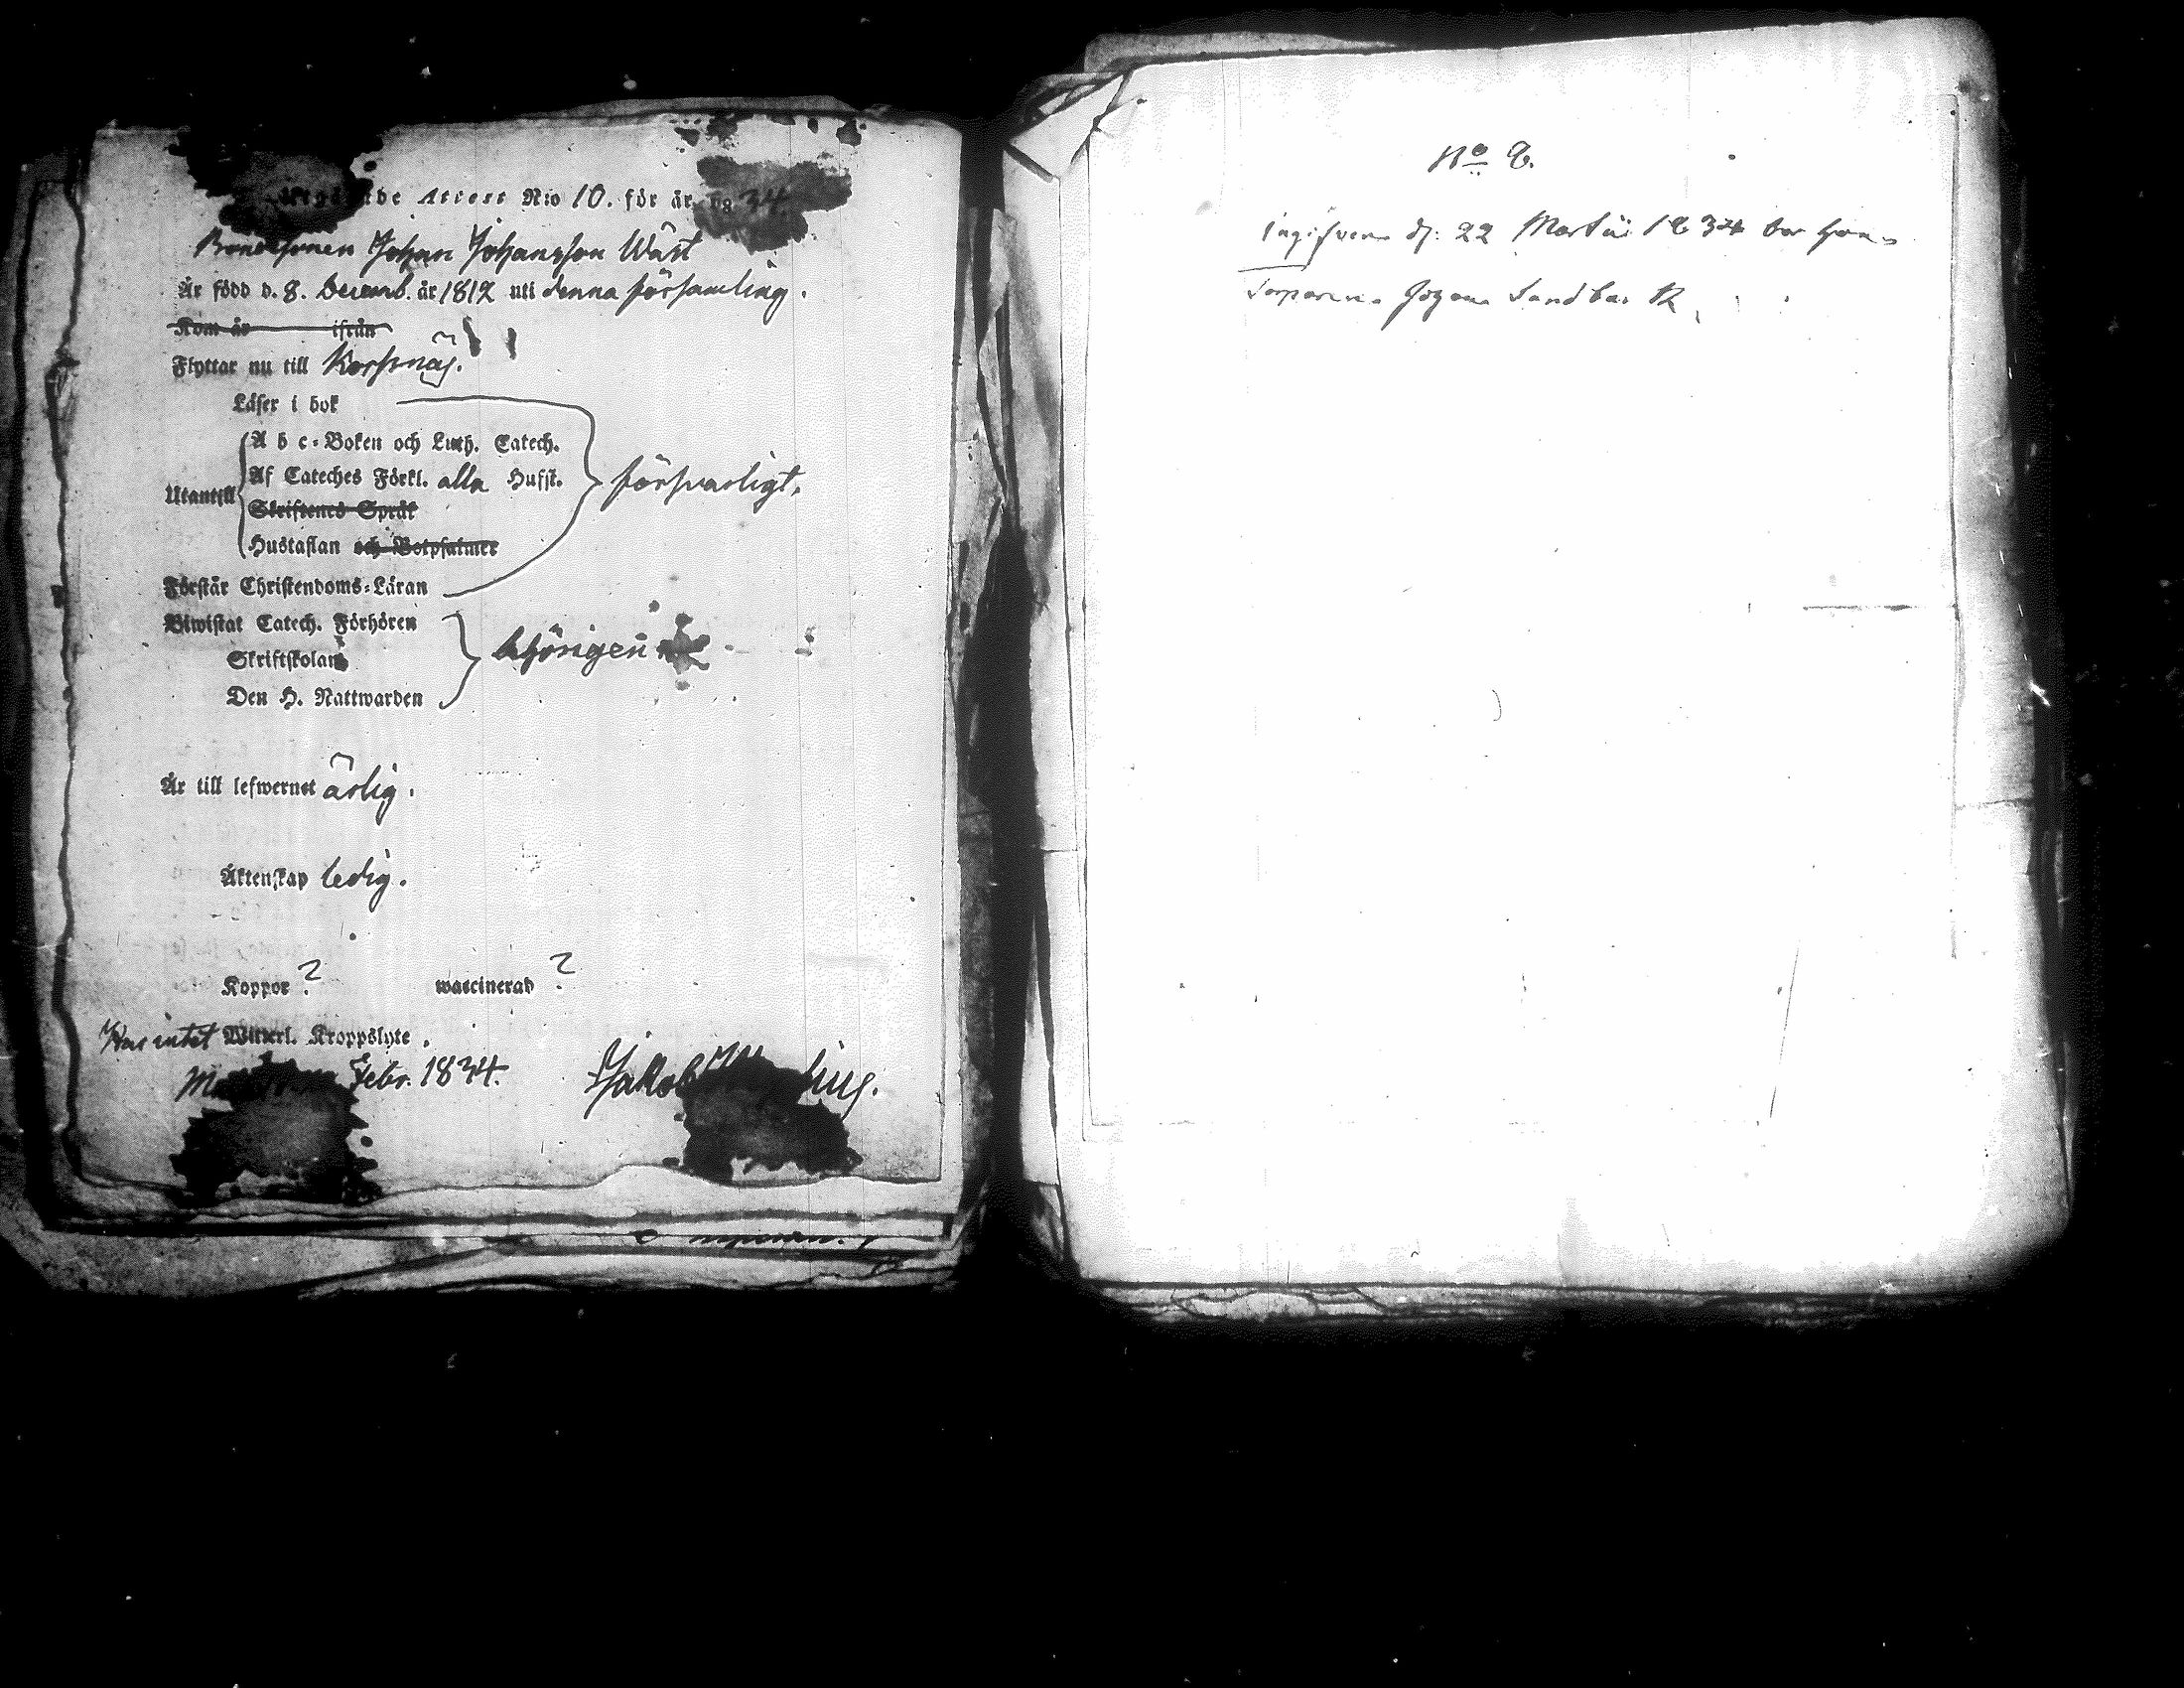 Attest N:o 10. för år 1834.
Bondesonen Johan Johansson Wäst
Är född d. 8. Decemb. år 1812 uti denna församling.
Kom år ifrån
Flyttar nu till Korsnäs.
Läser i bok
A b c-Boken och Luth. Catech.
Af Cateches Förkl. alla Hufst. försvarligt.
Utantill
Skriftenes Språk
Hustaflan och Botpsalmer
Förstår Christendoms-Läran
Biwistat Catech. Förhören
Skriftskolan behörigen
Den H. Nattwarden
Är till lefwernet ärlig.
Äktenskap ledig.
Koppor ? waccinerad ?
Har intet Witterl. Kroppslyte.
Febr. 1834. Jakob
No 8.
Ingifven d. 22 Martii 1834
Johan